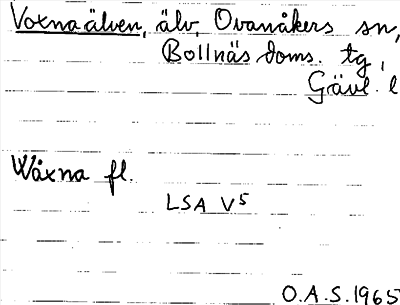 Voxnaälven, älv, Ovanåkers sn,
Bollnäs doms. tg,
Gävl. l
Wåxna fl.
LSA V5
O.A.S. 1965